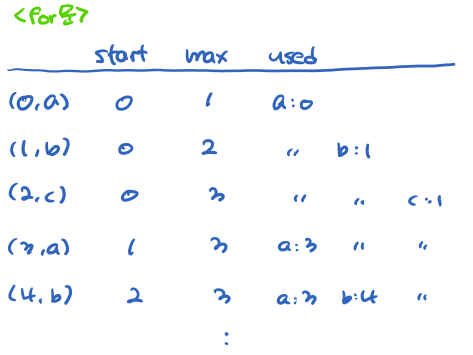 <for문>
start max used
(0,a) 0 1 a:0
(1,b) 0 2 〃 b:1
(2,c) 0 3 〃 〃 c:1
(3,a) 1 3 a:3 〃 〃
(4,b) 2 3 a:3 b:4 〃
: